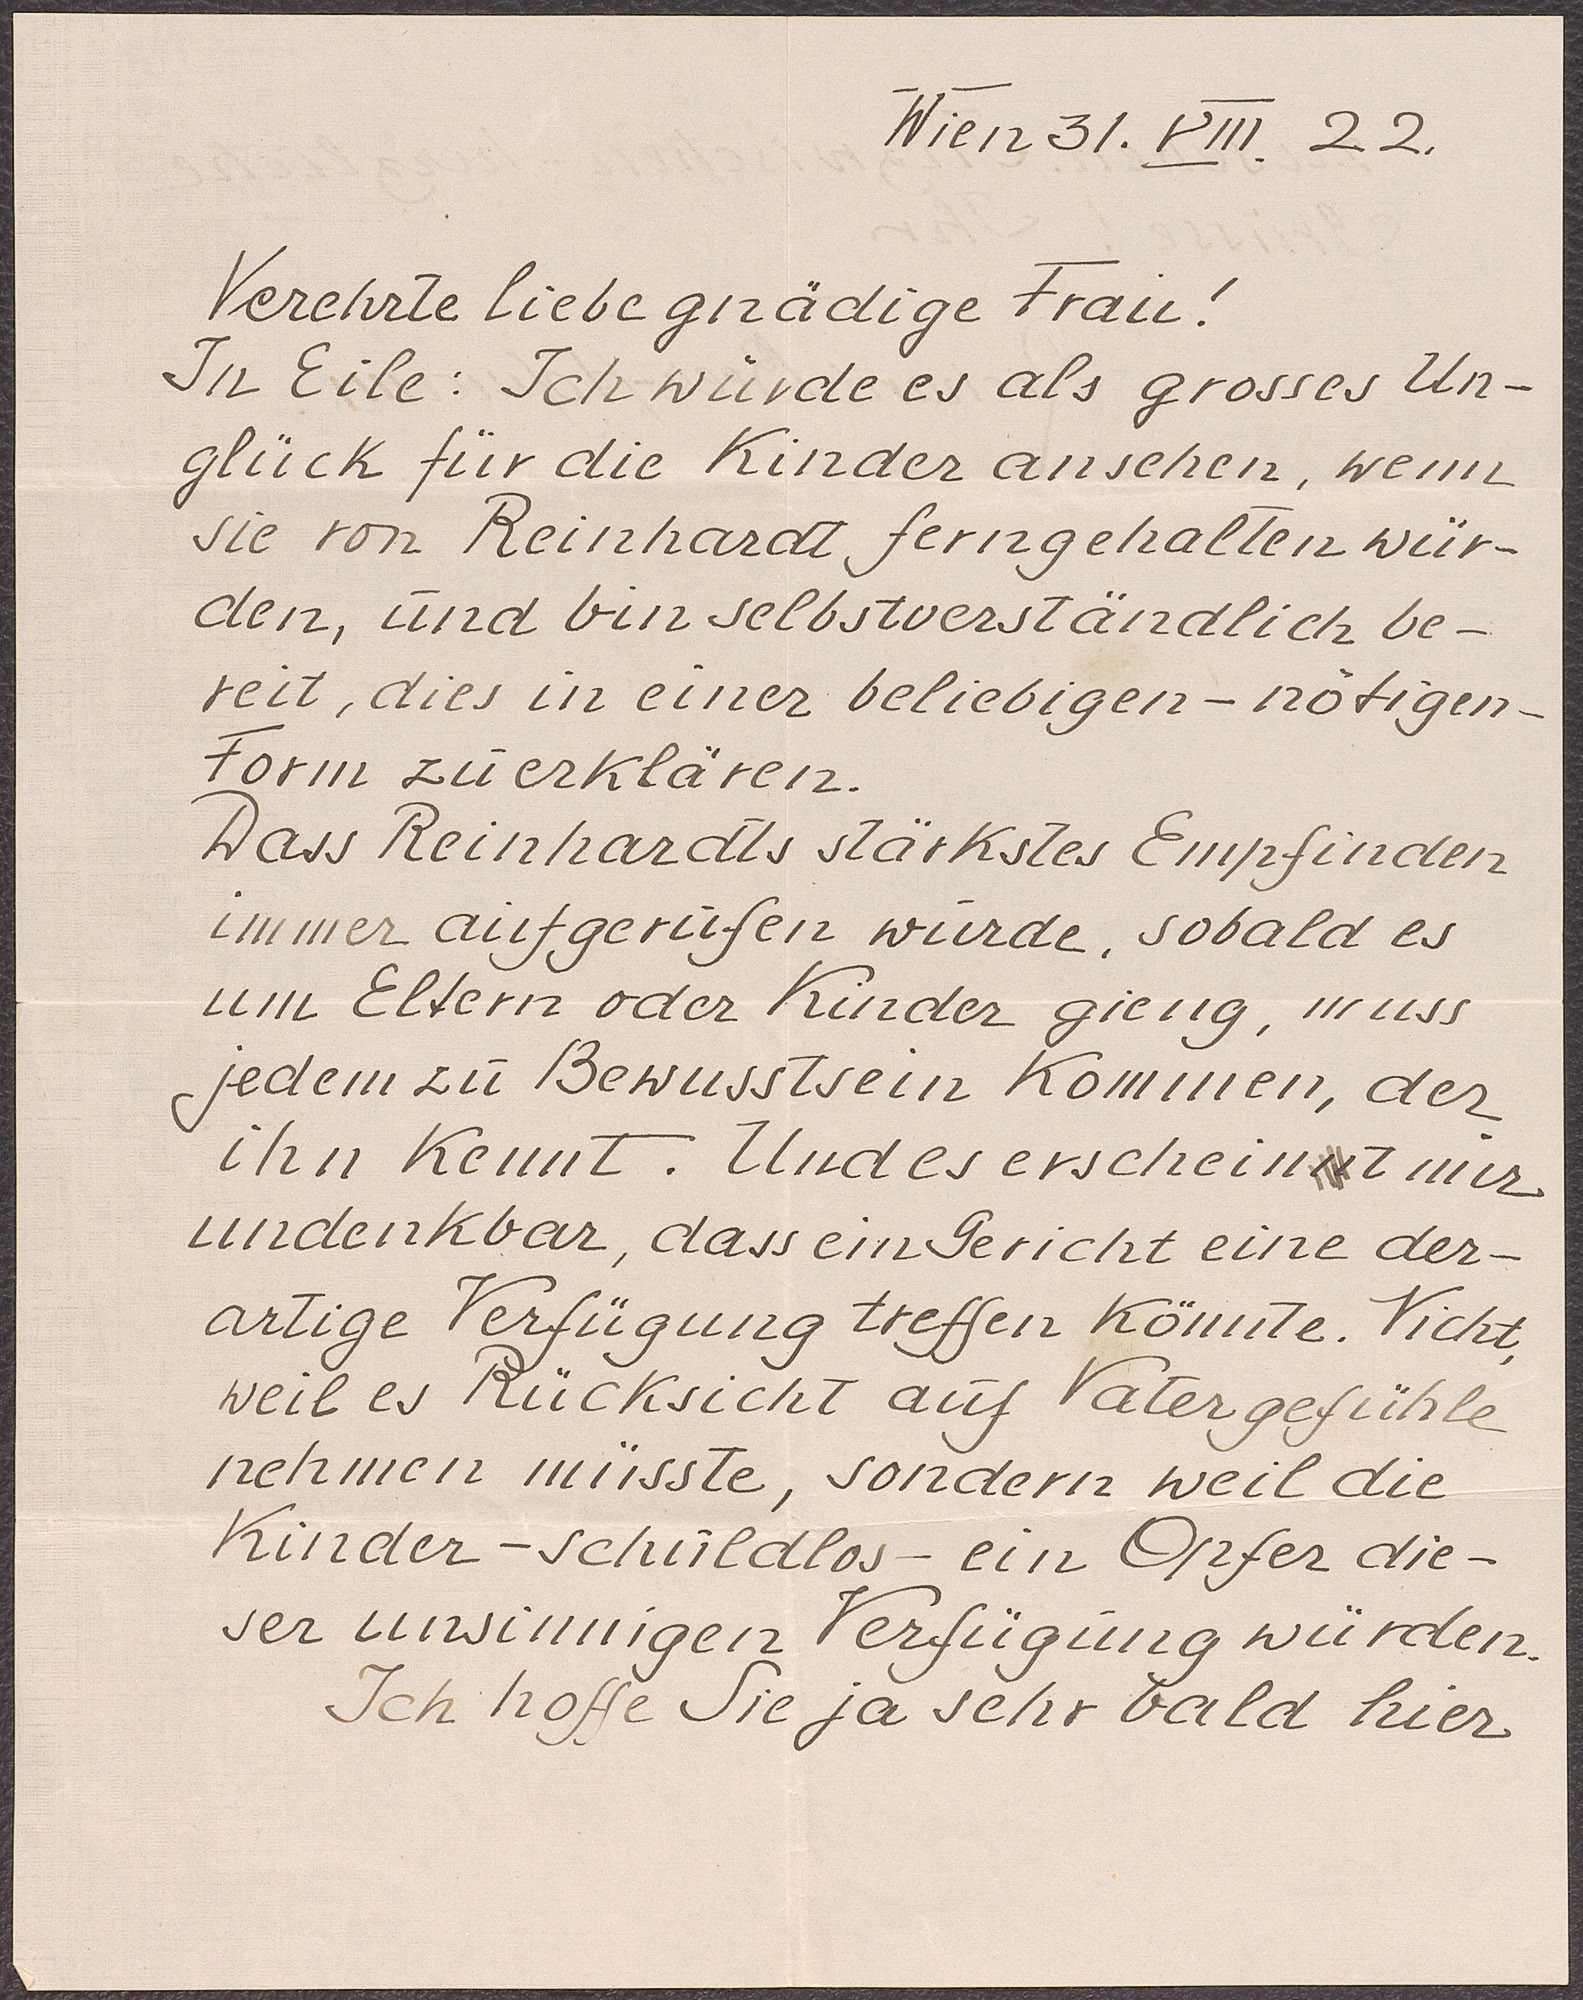 Wien 31. VIII. 22.
Verehrte liebe gnädige Frau!
In Eile: Ich würde es als grosses Un-
glück für die Kinder ansehen, wenn
sie von Reinhardt ferngehalten wür-
den, und bin selbstverständlich be-
reit, dies in einer beliebigen - nötigen -
Form zu erklären.
Dass Reinhardts stärkstes Empfinden
immer aufgerufen wurde, sobald es
um Eltern oder Kinder gieng, muss
jedem zu Bewusstsein kommen, der
ihn kennt. Und es erscheint mir
undenkbar, dass ein Gericht eine der-
artige Verfügung treffen könnte. Nicht,
weil es Rücksicht auf Vatergefühle
nehmen müsste, sondern weil die
Kinder - schuldlos - ein Opfer die-
ser unsinnigen Verfügung würden.
Ich hoffe Sie ja sehr bald hier